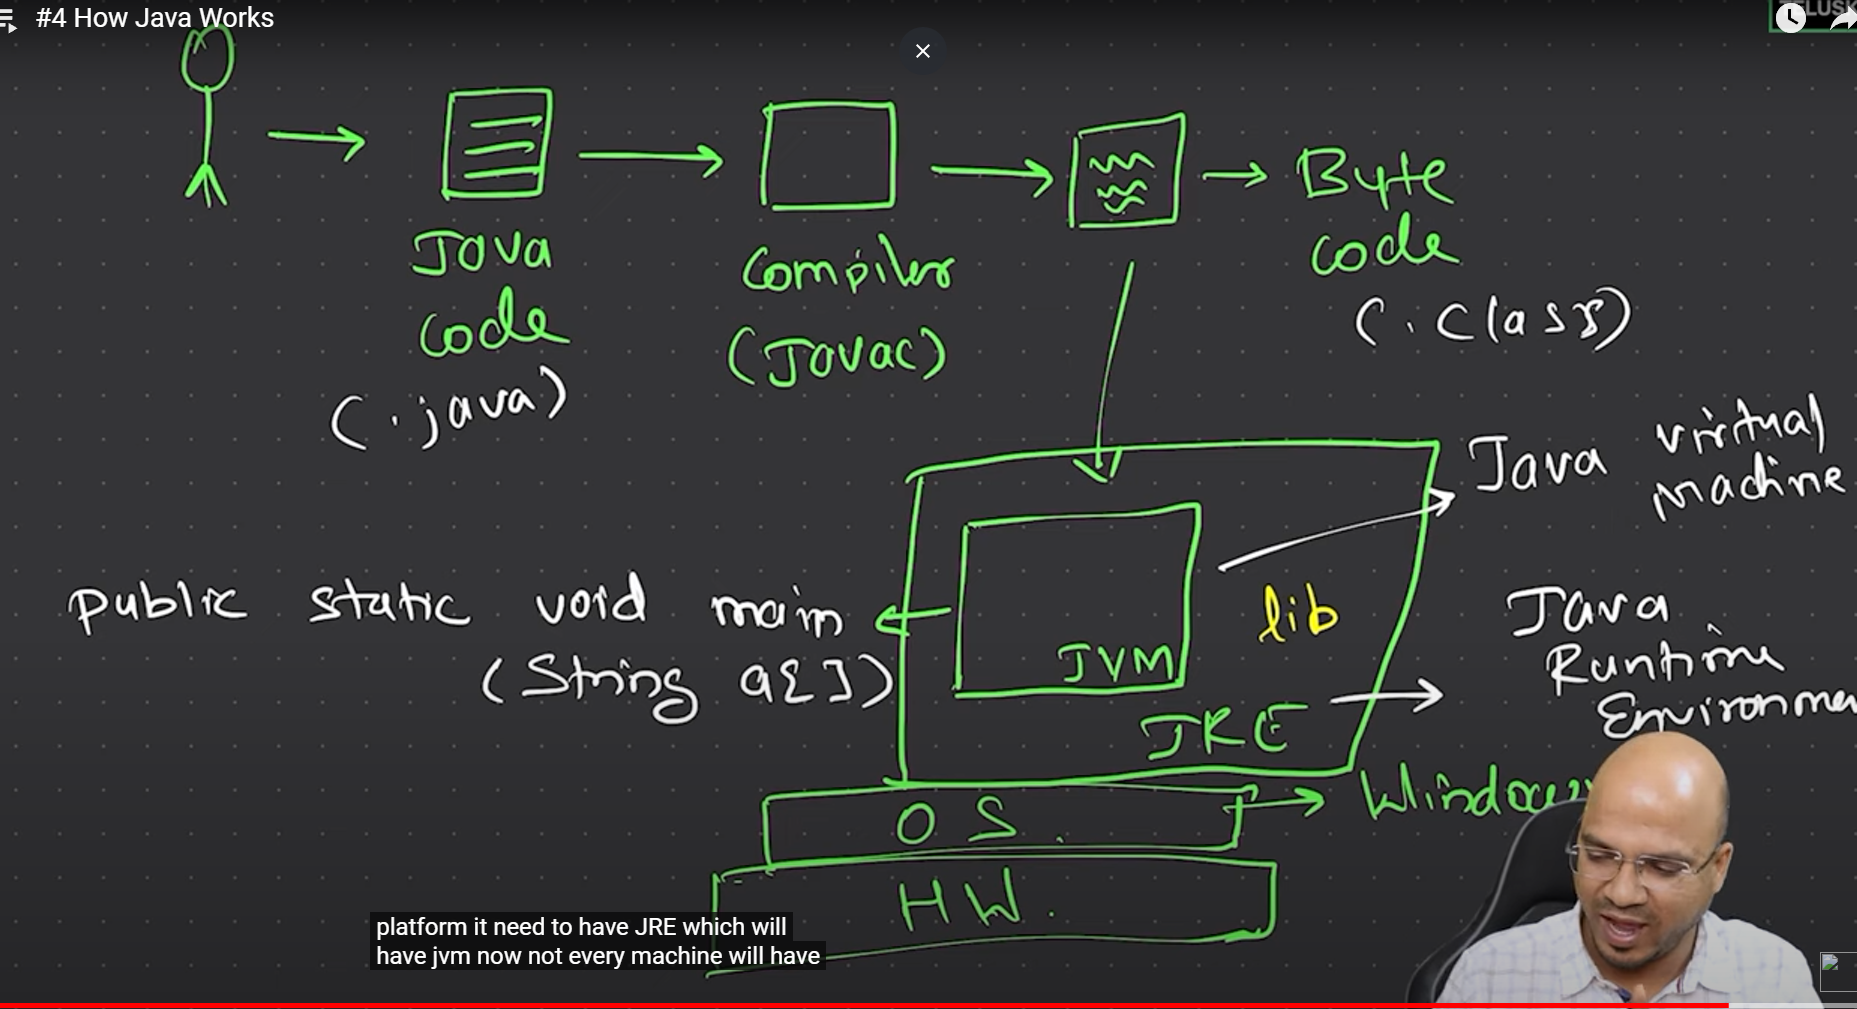 #4 How Java Works
Java
code
(.java)
Compiler
(Javac)
Byte
code
(.class)
Java virtual
machine
public static void main
(String a[])
lib
JVM
JRE
Java
Runtime
Environmen
OS.
HW.
platform it need to have JRE which will
have jvm now not every machine will have